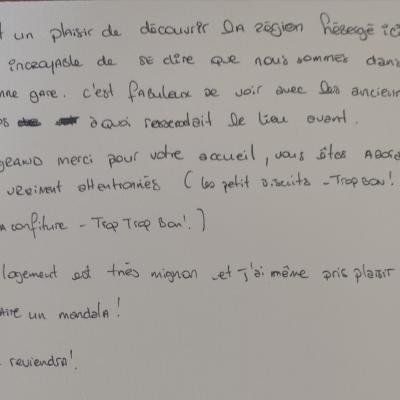 t un plaisir de découvrir la région hébergé ici
incroyable de se dire que nous sommes dans
nne gare. c'est fabuleux de voir avec les ancien
os à quoi ressemblait le lieu avant.
GRAND merci pour votre accueil, vous êtes ADOR
vraiment attentionnés (les petit biscuits - Trop Bon!
confiture - Trop Trop Bon!.)
logement est très mignon et j'ai même pris plaisir
aire un mandala!
reviendra!